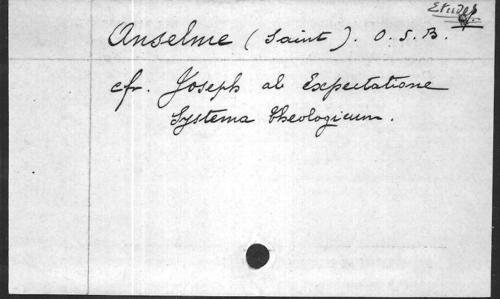 Etudes
Anselme (Saint). O.S.B.
cfr. Joseph ab Expectatione
Systema theologicum.